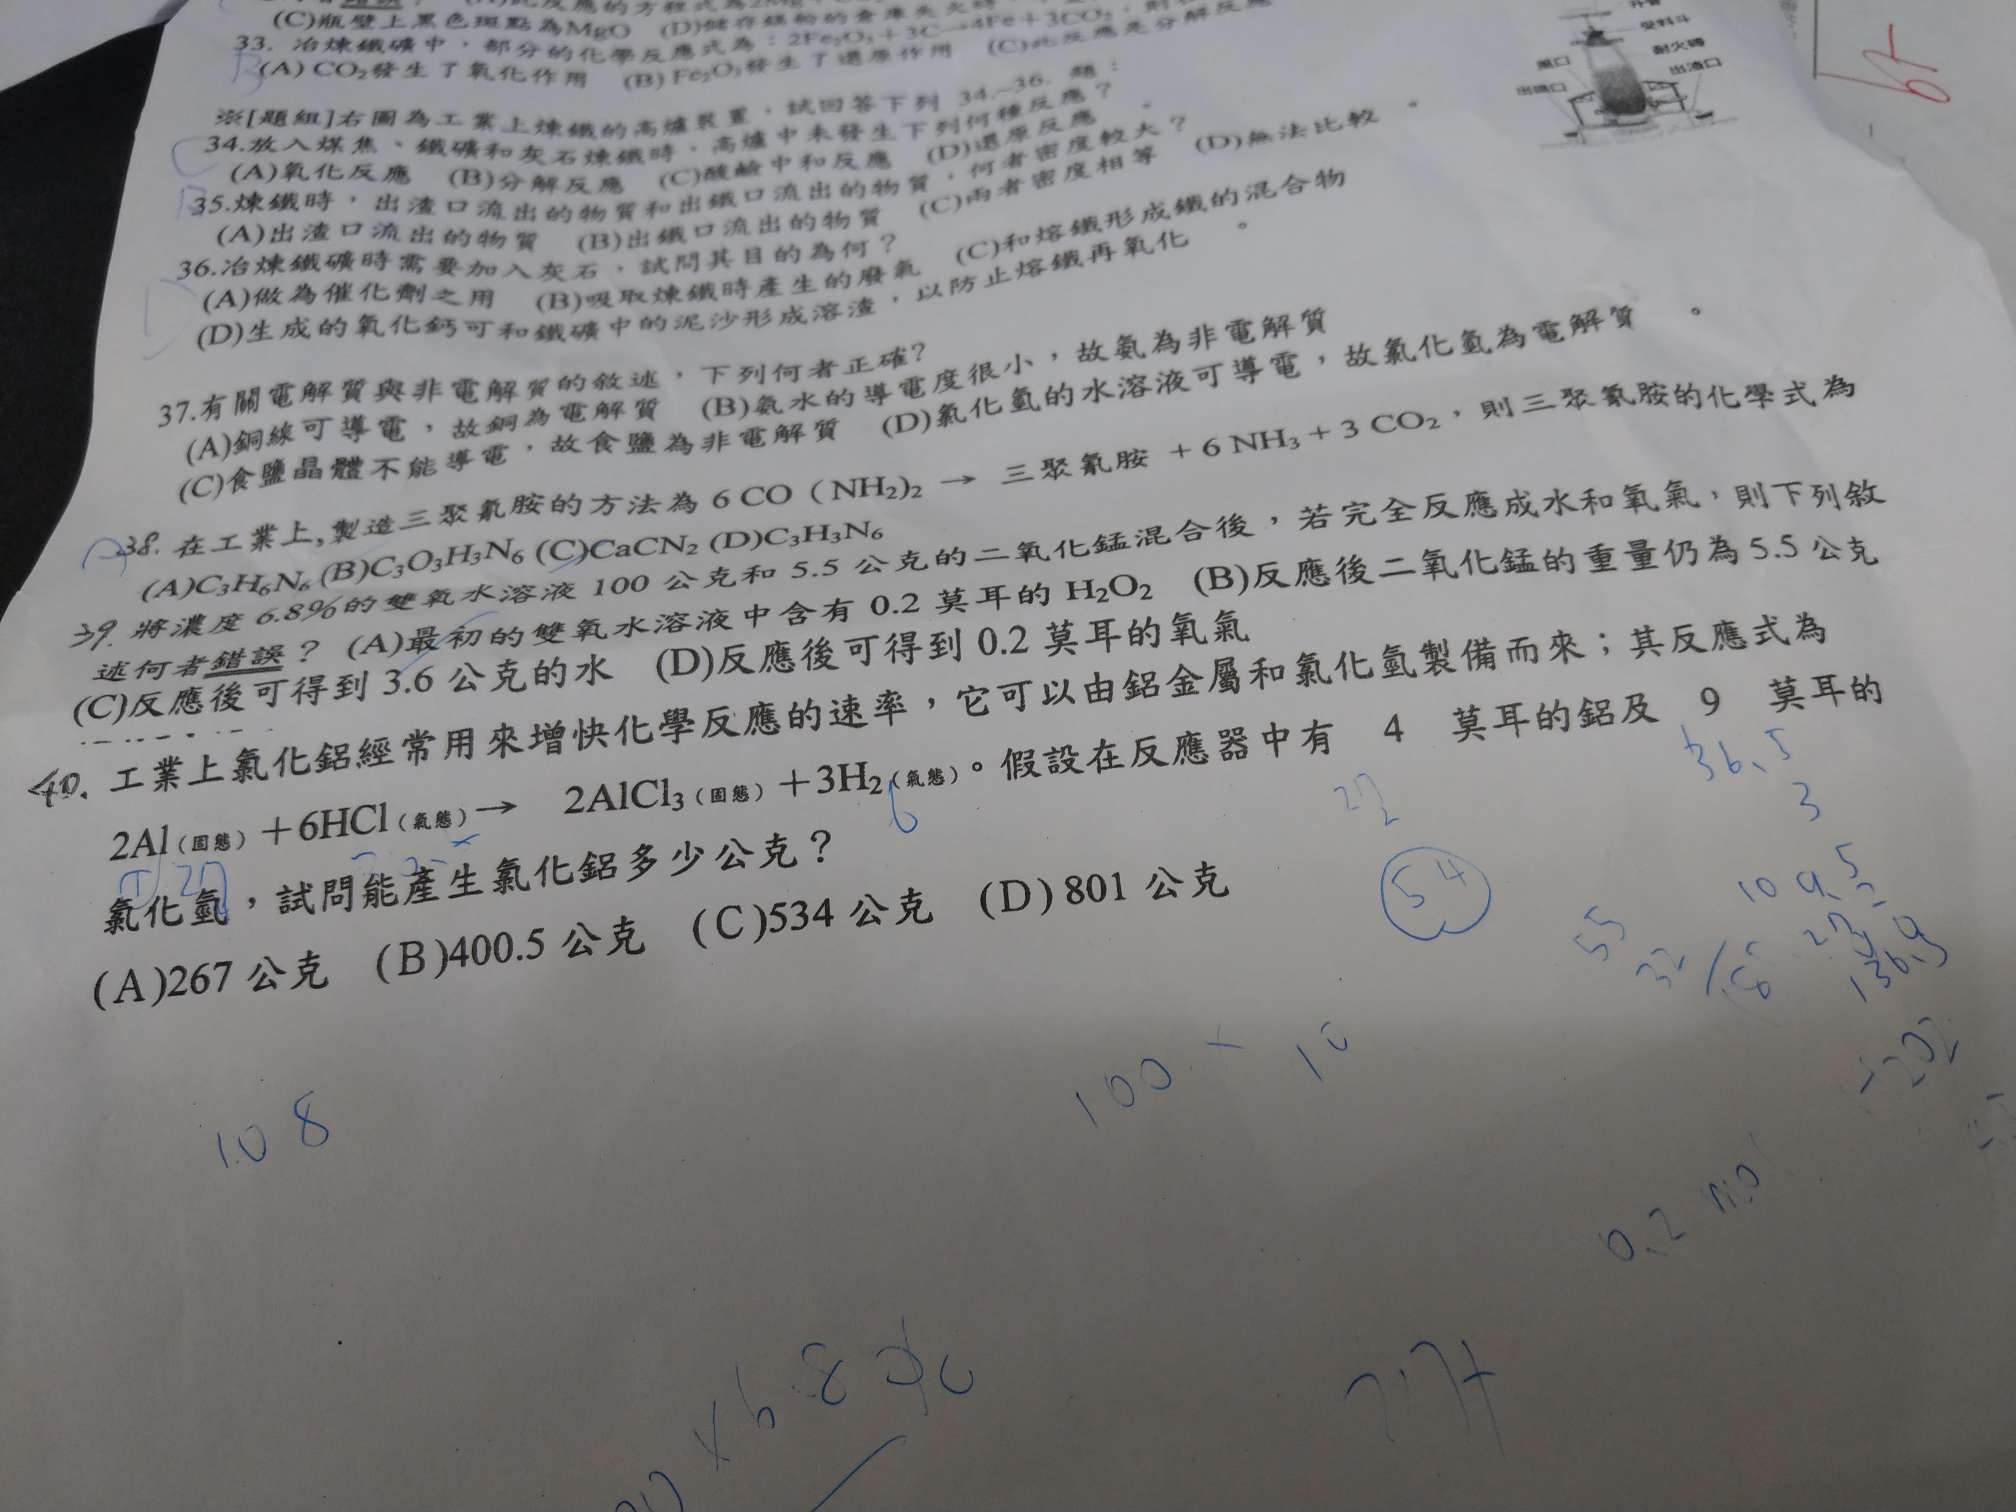 (C)瓶壁上黑色斑點為MgO
33. 冶煉鐵礦中，部分的化學反應式為：2Fe₂O₃+3C→4Fe+3CO₂，則
(A) CO₂發生了氧化作用 (B) Fe₂O₃發生了還原作用 (C)此反應是分解反應
※[題組]右圖為工業上煉鐵的高爐裝置，試回答下列 34.~36. 題：
34.放入煤焦、鐵礦和灰石煉鐵時，高爐中未發生下列何種反應？
(A)氧化反應 (B)分解反應 (C)酸鹼中和反應 (D)還原反應。
35.煉鐵時，出渣口流出的物質和出鐵口流出的物質，何者密度較大？
(A)出渣口流出的物質 (B)出鐵口流出的物質 (C)兩者密度相等 (D)無法比較。
36.冶煉鐵礦時需要加入灰石，試問其目的為何？
(A)做為催化劑之用 (B)吸取煉鐵時產生的廢氣 (C)和熔鐵形成鐵的混合物
(D)生成的氧化鈣可和鐵礦中的泥沙形成溶渣，以防止熔鐵再氧化。
受料斗
耐火磚
風口
出渣口
出鐵口
37.有關電解質與非電解質的敘述，下列何者正確？
(A)銅線可導電，故銅為電解質 (B)氨水的導電度很小，故氨為非電解質
(C)食鹽晶體不能導電，故食鹽為非電解質 (D)氯化氫的水溶液可導電，故氯化氫為電解質。
38. 在工業上,製造三聚氰胺的方法為 6 CO (NH₂)₂ → 三聚氰胺 + 6 NH₃ + 3 CO₂，則三聚氰胺的化學式為
(A)C₃H₆N₆ (B)C₃O₃H₃N₆ (C)CaCN₂ (D)C₃H₃N₆
39. 將濃度 6.8%的雙氧水溶液 100 公克和 5.5 公克的二氧化錳混合後，若完全反應成水和氧氣，則下列敘
述何者錯誤？ (A)最初的雙氧水溶液中含有 0.2 莫耳的 H₂O₂ (B)反應後二氧化錳的重量仍為 5.5 公克
(C)反應後可得到 3.6 公克的水 (D)反應後可得到 0.2 莫耳的氧氣
40. 工業上氯化鋁經常用來增快化學反應的速率，它可以由鋁金屬和氯化氫製備而來；其反應式為
2Al(固態)+6HCl(氣態)→ 2AlCl₃(固態)+3H₂(氣態)。假設在反應器中有 4 莫耳的鋁及 9 莫耳的
氯化氫，試問能產生氯化鋁多少公克？
(A)267 公克 (B)400.5 公克 (C)534 公克 (D) 801 公克
6
27
36.5
3
54
109.5
55
32
108
100 ×
0.2 mol